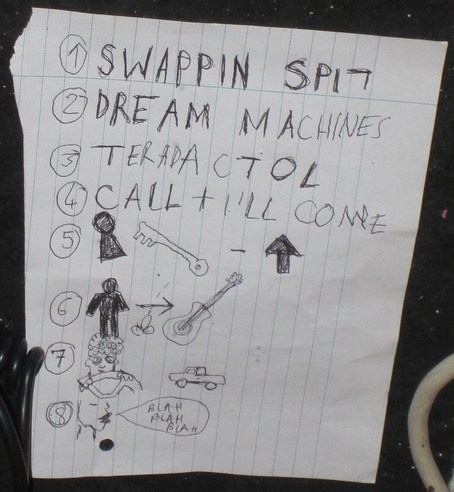 1 SWAPPIN SPIT
2 DREAM MACHINES
3 TERADACTOL
4 CALL + I'LL COME
5 -
6
7
8 BLAH
BLAH
BLAH